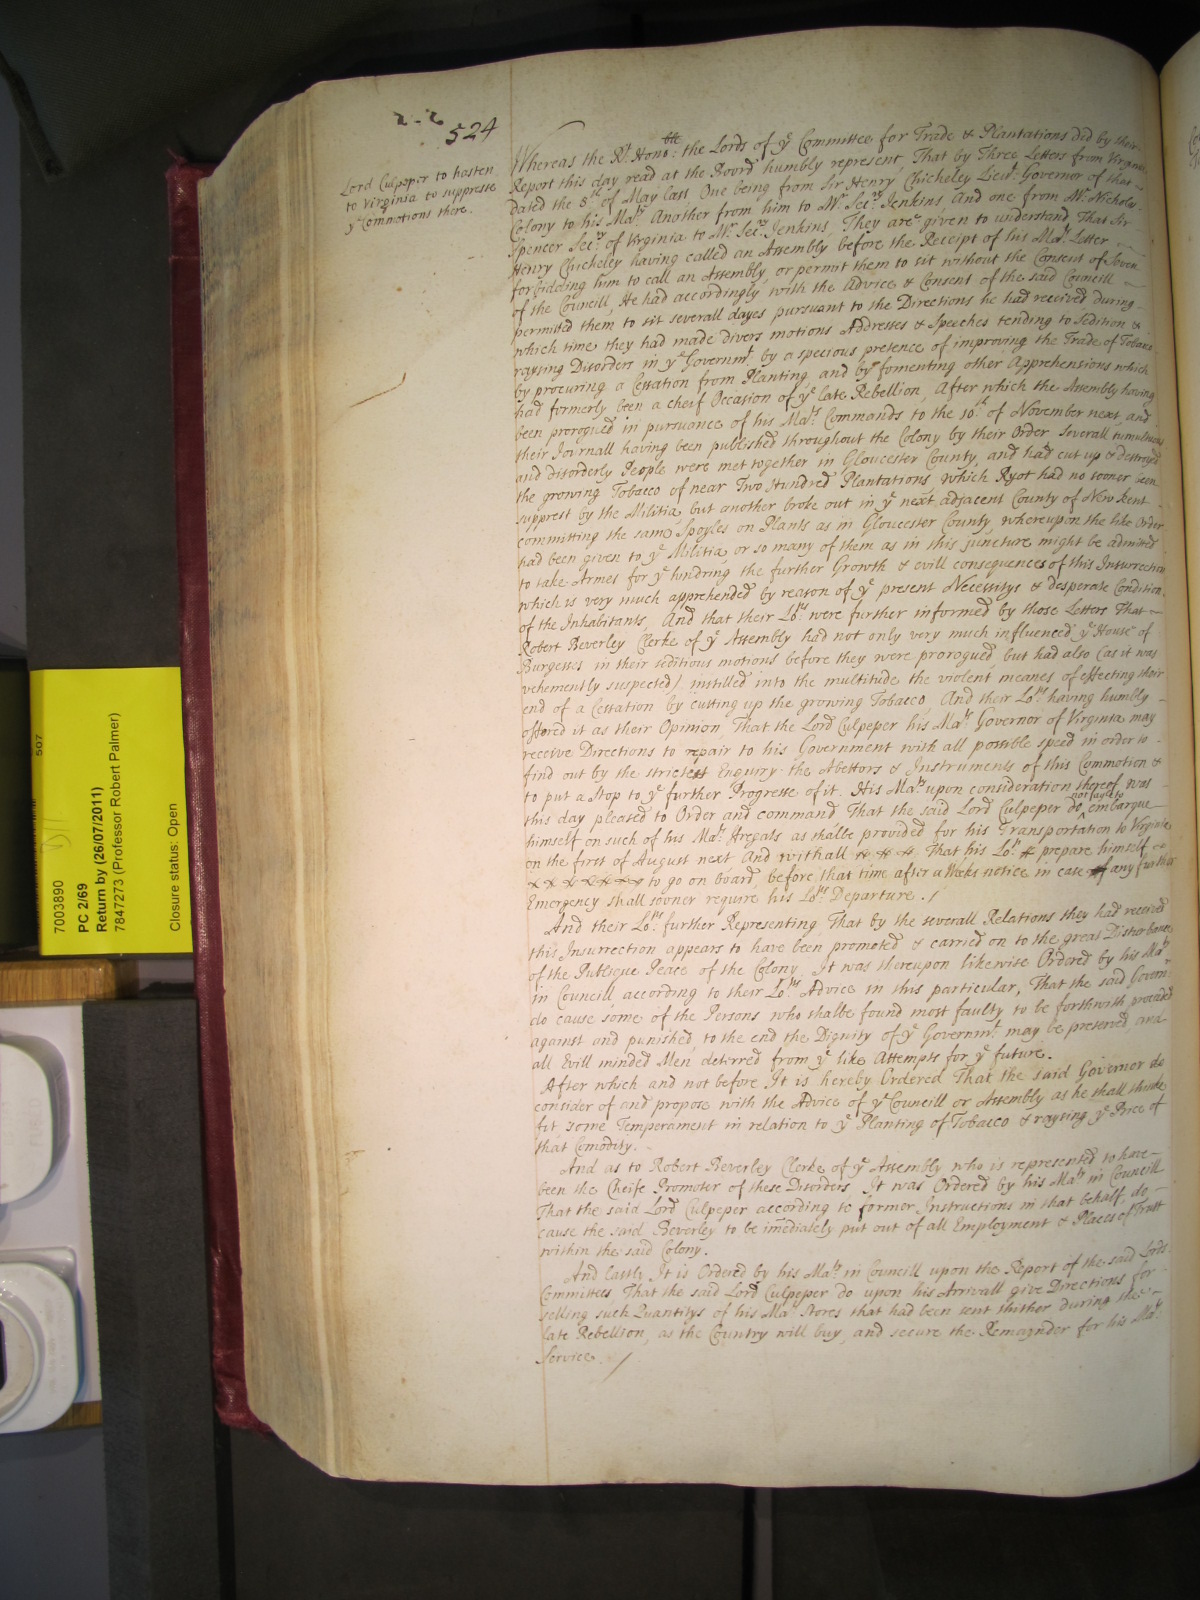 524
Lord Culpeper to hasten
to Virginia to suppresse
yᵉ Comotions there.
Whereas the Rᵗ. Honoᵇˡᵉ: the Lords of yᵉ Committee for Trade & Plantations did by their
Report this day read at the Board humbly represent, That by Three Letters from Virginia
dated the 8ᵗʰ of May last One being from Sir Henry Chicheley Lieuᵗ. Governor of that
Colony to his Maᵗʸ. Another from him to Mʳ. Secʳʸ. Jenkins, And one from Mʳ. Nicholas
Spencer Secʳʸ. of Virginia to Mʳ. Secʳʸ. Jenkins, They are given to understand That Sir
Henry Chicheley having called an Assembly before the Receipt of his Maᵗˢ. Letter
forbidding him to call an Assembly, or permit them to sit without the Consent of Seven
of the Councill, He had accordingly with the Advice & Consent of the said Councill
permitted them to sit severall dayes pursuant to the Directions he had received during
which time they had made divers motions Addresses & Speeches tending to Sedition &
raysing Disorders in yᵉ Governmᵗ. by a specious pretence of improving the Trade of Tobacco
by procuring a Cessation from Planting, and by fomenting other Apprehensions which
had formerly been a cheif Occasion of yᵉ late Rebellion, After which the Assembly having
been prorogued in pursuance of his Maᵗˢ. Commands to the 10ᵗʰ. of November next, and
their Journall having been published throughout the Colony by their Order severall tumultuous
and disorderly People were met together in Gloucester County, and had cut up & destroyed
the growing Tobacco of near Two Hundred Plantations, which Ryot had no sooner been
supprest by the Militia, but another broke out in yᵉ next adjacent County of New Kent
committing the same Spoyles on Plants as in Gloucester County, whereupon the like Order
had been given to yᵉ Militia, or so many of them as in this juncture might be admitted
to take Armes for yᵉ hindring the further Growth & evill consequences of this Insurrection
which is very much apprehended by reason of yᵉ present Necessitys & desperate Condition
of the Inhabitants, And that their Loᵖˢ were further informed by those Letters That
Robert Beverley Clerke of yᵉ Assembly had not only very much influenced yᵉ House of
Burgesses in their seditious motions before they were prorogued, but had also (as it was
vehemently suspected) instilled into the multitude the violent means of effecting their
end of a Cessation by cutting up the growing Tobacco, And their Loᵖˢ having humbly
offered it as their Opinion, That the Lord Culpeper his Maᵗˢ Governor of Virginia may
receive Directions to repair to his Government with all possible speed in order to
find out by the strictest Enquiry the Abettors & Instruments of this Commotion &
to put a stop to yᵉ further Progresse of it. His Maᵗʸ upon consideration thereof was
this day pleased to Order and command That the said Lord Culpeper do not fayle to embarque
himself on such of his Maᵗˢ Fregats as shalbe provided for his Transportation to Virginia
on the first of August next And withall That his Loᵖ prepare himself
to go on board, before that time after a Weeks notice in case of any further
Emergency shall sooner require his Loᵖˢ Departure. /
And their Loᵖˢ. further Representing That by the severall Relations they had received
this Insurrection appears to have been promoted & carried on to the great Disturbance
of the Publique Peace of the Colony. It was thereupon likewise Ordered by his Maᵗʸ
in Councill, according to their Loᵖˢ Advice in this particular, That the said Governʳ
do cause some of the Persons who shalbe found most faulty to be forthwith proceeded
against and punished, to the end the Dignity of yᵉ Governmᵗ. may be preserved, and
all Evill minded Men deterred from yᵉ like Attempts for yᵉ future.
After which and not before It is hereby Ordered That the said Governor do
consider of and propose with the Advice of yᵉ Councill or Assembly as he shall thinke
fit some Temperament in relation to yᵉ Planting of Tobacco & raysing yᵉ Price of
that Comodity.
And as to Robert Beverley Clerke of yᵉ Assembly who is represented to have
been the Cheife Promoter of these Disorders It was Ordered by his Maᵗʸ in Councill
That the said Lord Culpeper according to former Instructions in that behalf, do
cause the said Beverley to be im̄ediately put out of all Employment & Places of Trust
within the said Colony.
And lastly It is Ordered by his Maᵗʸ in Councill upon the Report of the said Lords
Committees That the said Lord Culpeper do upon his Arrivall give Directions for
selling such Quantitys of his Maᵗˢ Stores that had been sent thither during the
late Rebellion, as the Country will buy, and secure the Remaynder for his Maᵗˢ
Service. /
507
7003890
PC 2/69
Return by (26/07/2011)
7847273 (Professor Robert Palmer)
Closure status: Open